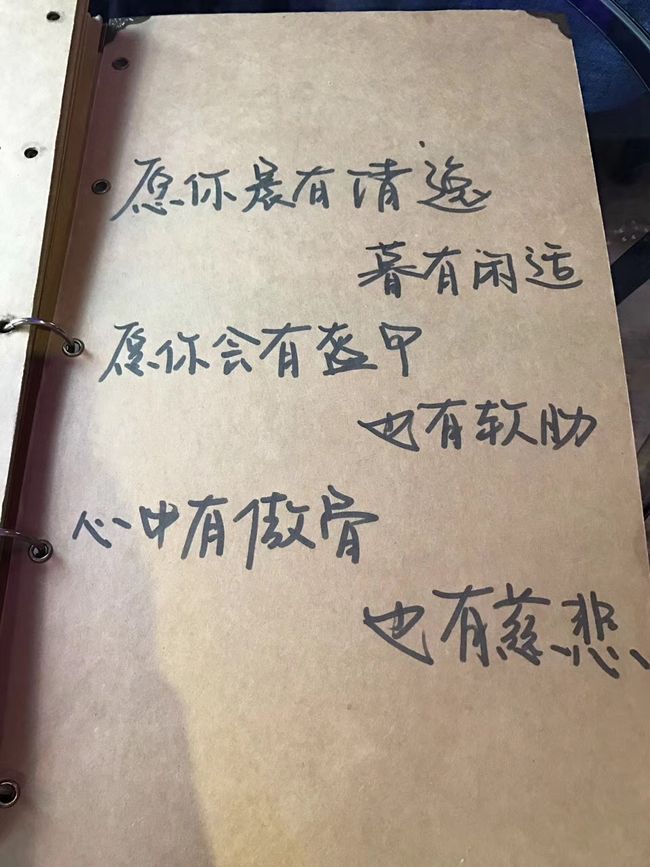 愿你晨有清逸
暮有闲适
愿你会有盔甲
也有软肋
心中有傲骨
也有慈悲